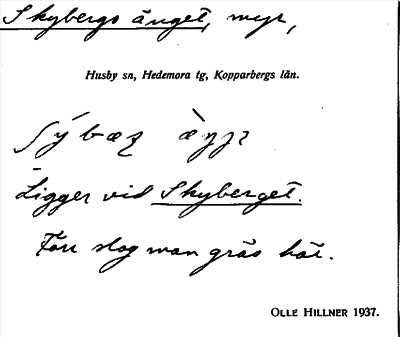 Skybergs änget, myr,
Husby sn, Hedemora tg, Kopparbergs län.
Ligger vid Skyberget.
Förr slog man gräs här.
OLLE HILLNER 1937.